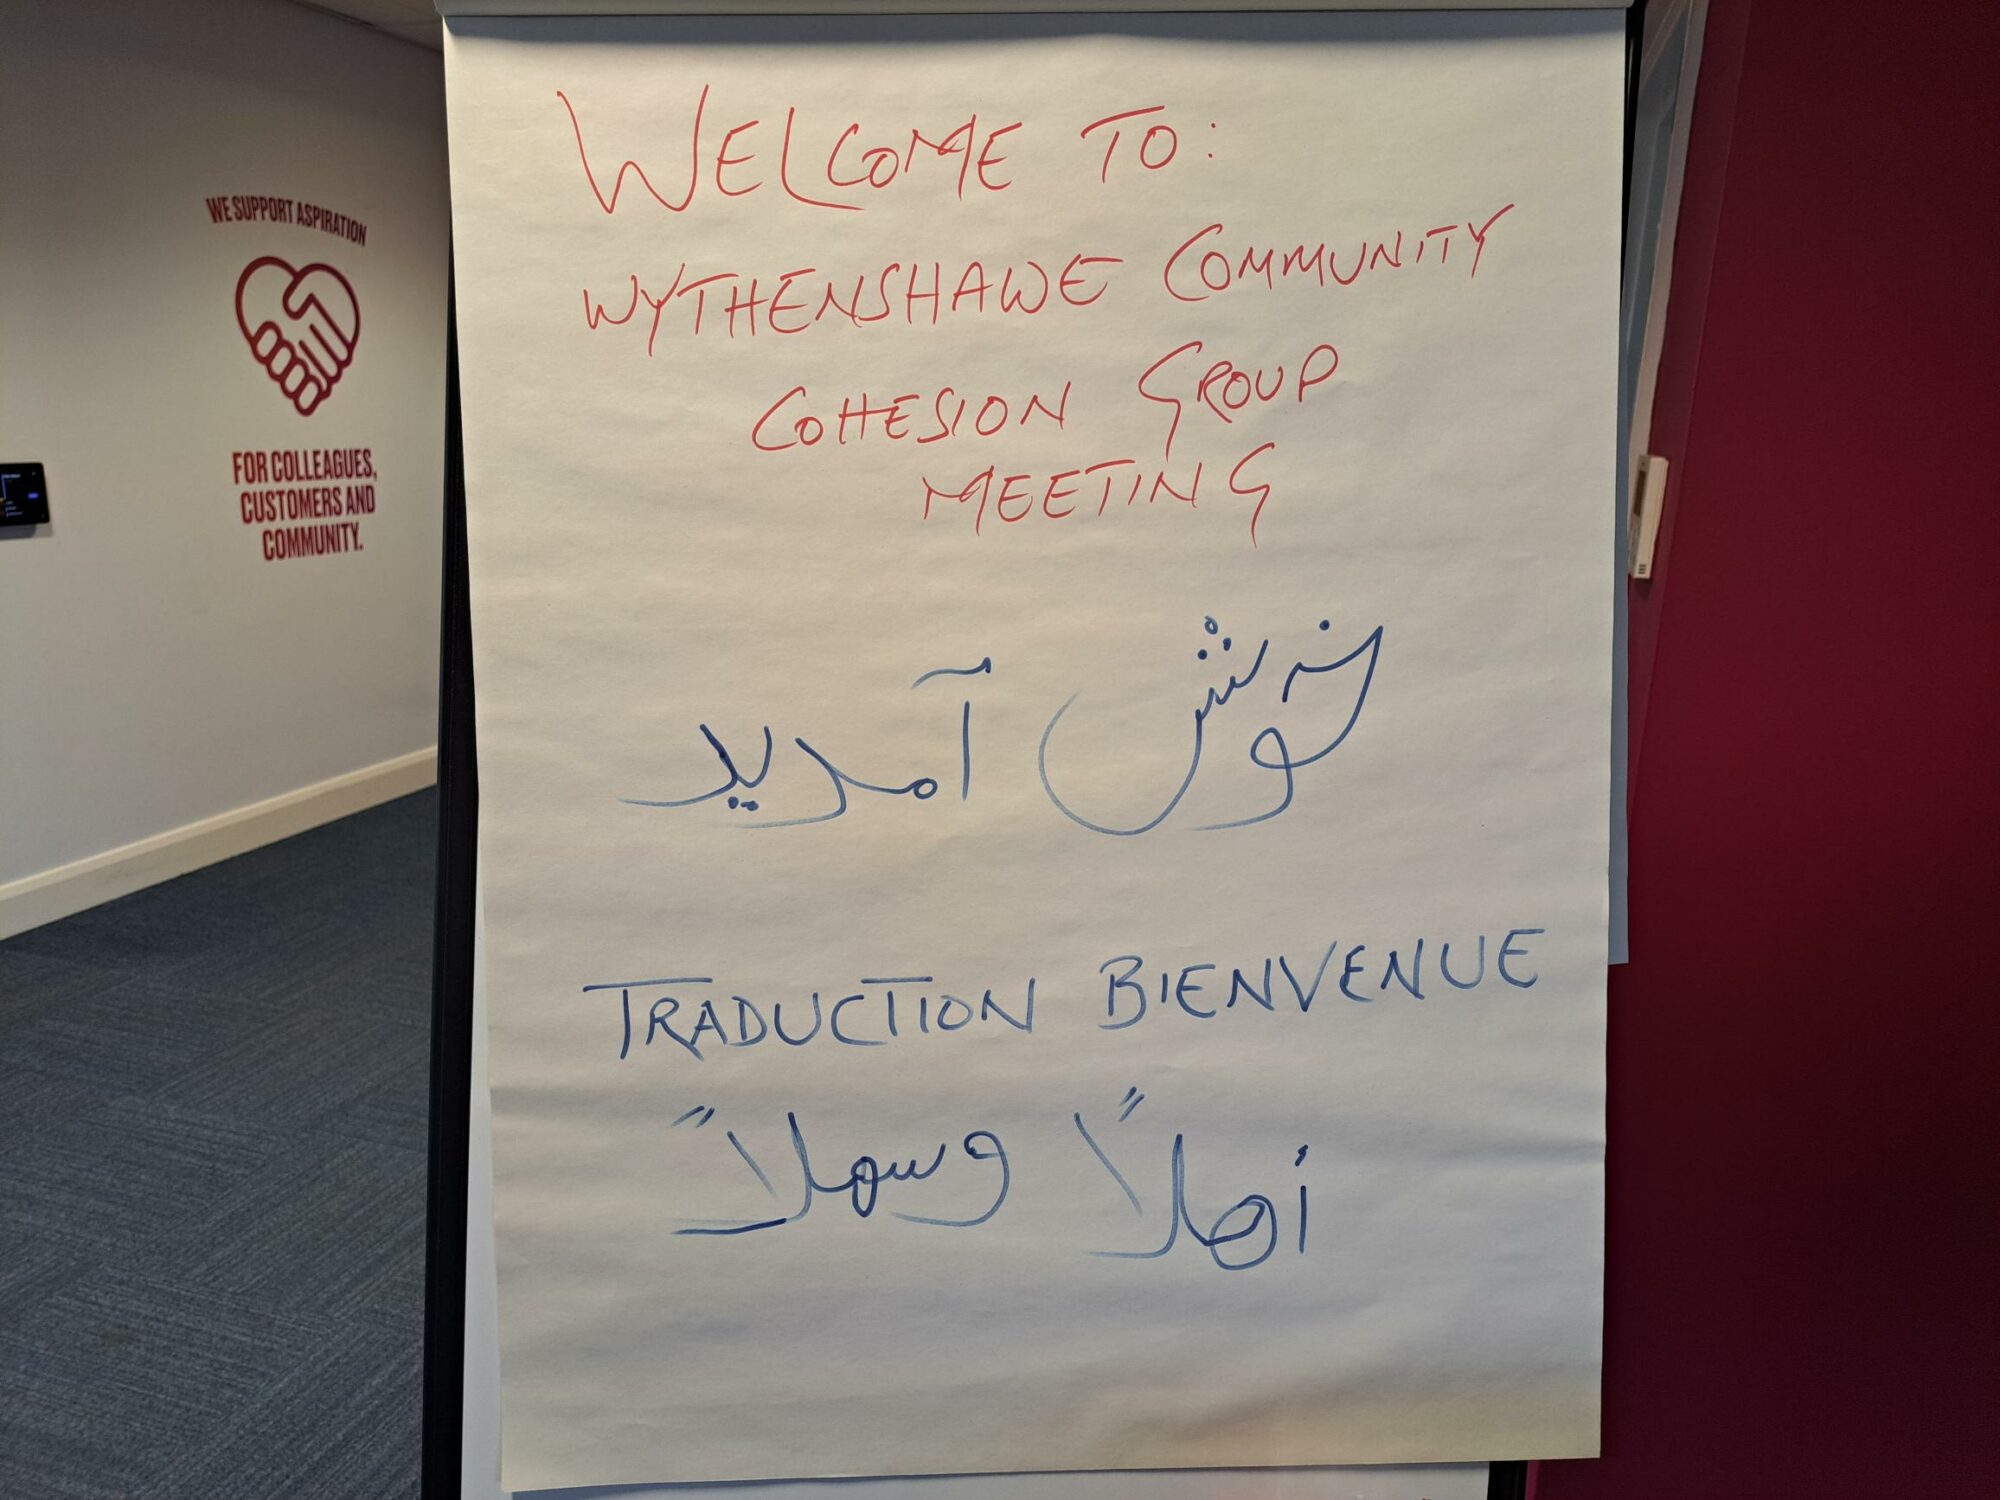 WE SUPPORT ASPIRATION
FOR COLLEAGUES,
CUSTOMERS AND
COMMUNITY.
WELCOME TO:
WYTHENSHAWE COMMUNITY
COHESION GROUP
MEETING
خوش آمدید
TRADUCTION BIENVENUE
أهلاً وسهلاً